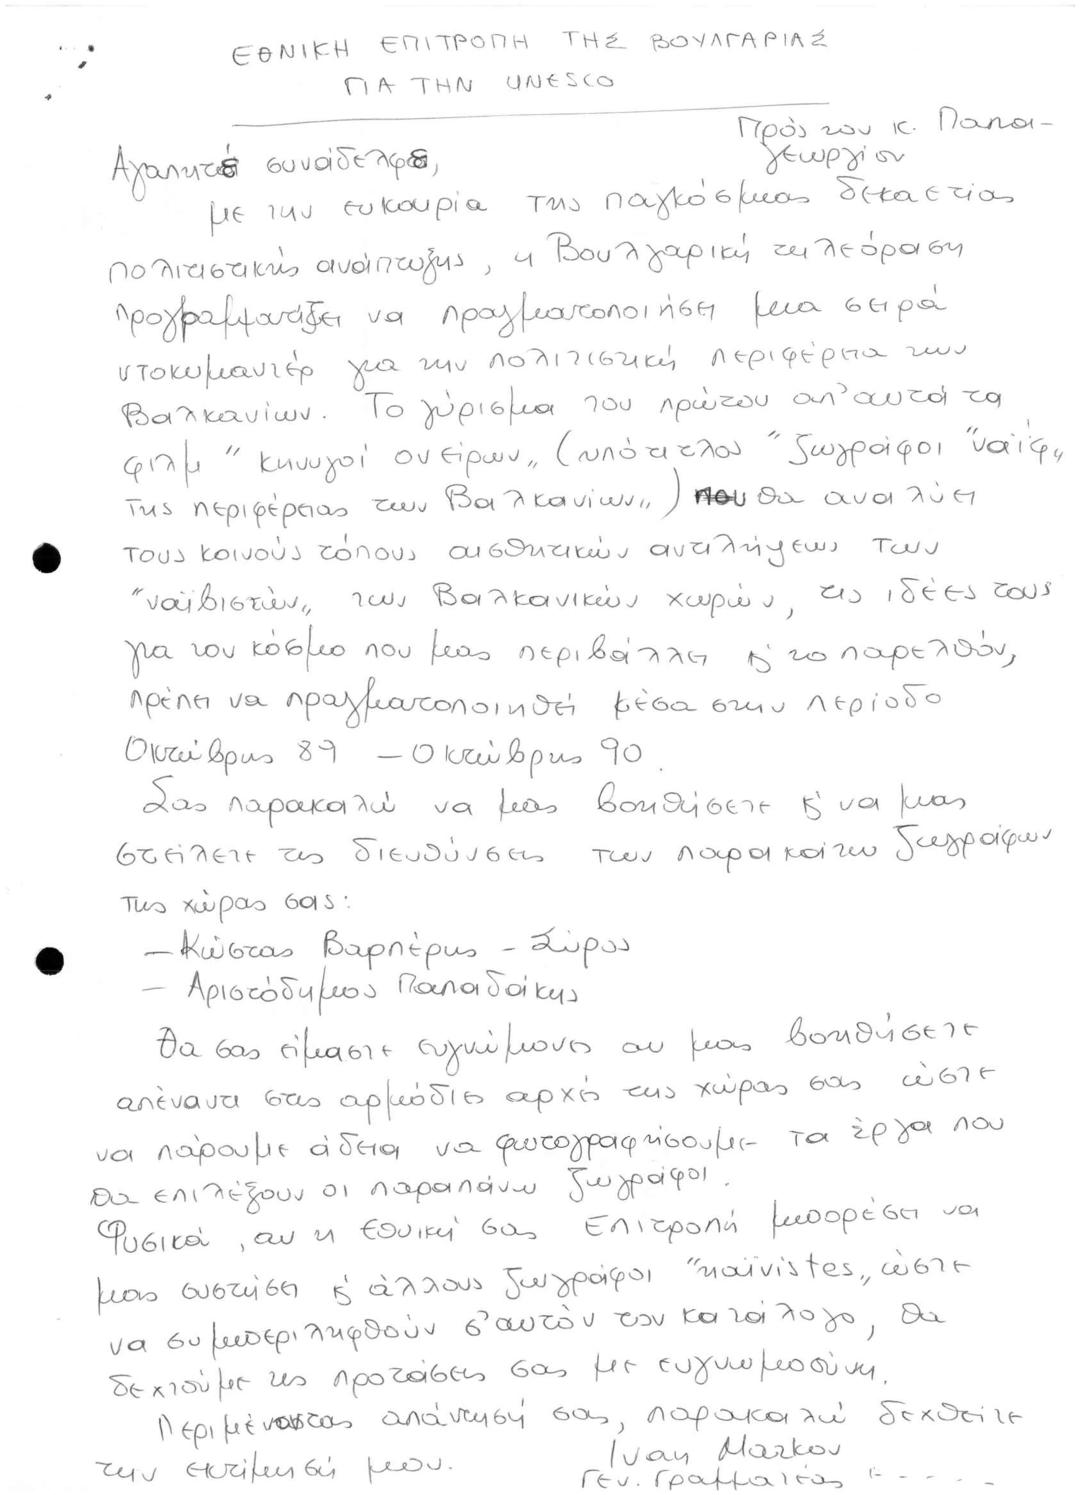 ΕΘΝΙΚΗ ΕΠΙΤΡΟΠΗ ΤΗΣ ΒΟΥΛΓΑΡΙΑΣ
ΓΙΑ ΤΗΝ UNESCO
Πρός τον κ. Παπα-
γεωργίου
Αγαπητέ συνάδελφε,
με την ευκαιρία της παγκόσμιας δεκαετίας
πολιτιστικής ανάπτυξης, η Βουλγαρική τηλεόραση
προγραμματίζει να πραγματοποιήσει μια σειρά
ντοκυμαντέρ για την πολιτιστική περιφέρεια των
Βαλκανίων. Το γύρισμα του πρώτου απ' αυτά τα
φιλμ "κυνυγοί ονείρων" (υπότιτλος "ζωγράφοι "ναΐφ"
της περιφέρειας των Βαλκανίων") που θα αναλύει
τους κοινούς τόπους αισθητικών αντιλήψεων των
"ναϊβιστών" των Βαλκανικών χωρών, τις ιδέες τους
για τον κόσμο που μας περιβάλλει κ' το παρελθόν,
πρέπει να πραγματοποιηθεί μέσα στην περίοδο
Οκτώβρης 89 – Οκτώβρης 90.
Σας παρακαλώ να μας βοηθήσετε κ' να μας
στείλετε τις διευθύνσεις των παρακάτω ζωγράφων
της χώρας σας:
– Κώστας Βαρπέρης – Σύρος
– Αριστόδημος Παπαδάκης
Θα σας είμαστε ευγνώμονες αν μας βοηθήσετε
απέναντι στις αρμόδιες αρχές της χώρας σας ώστε
να πάρουμε άδεια να φωτογραφήσουμε τα έργα που
θα επιλέξουν οι παραπάνω ζωγράφοι.
Φυσικά, αν η εθνική σας Επιτροπή μπορέσει να
μας συστήσει κ' άλλους ζωγράφοι "naïvistes" ώστε
να συμπεριληφθούν σ' αυτόν τον κατάλογο, θα
δεχτούμε τις προτάσεις σας με ευγνωμοσύνη.
Περιμένοντας απάντησή σας, παρακαλώ δεχθείτε
την εκτίμησή μου.
Ivan Markov
Γεν. Γραμματέας